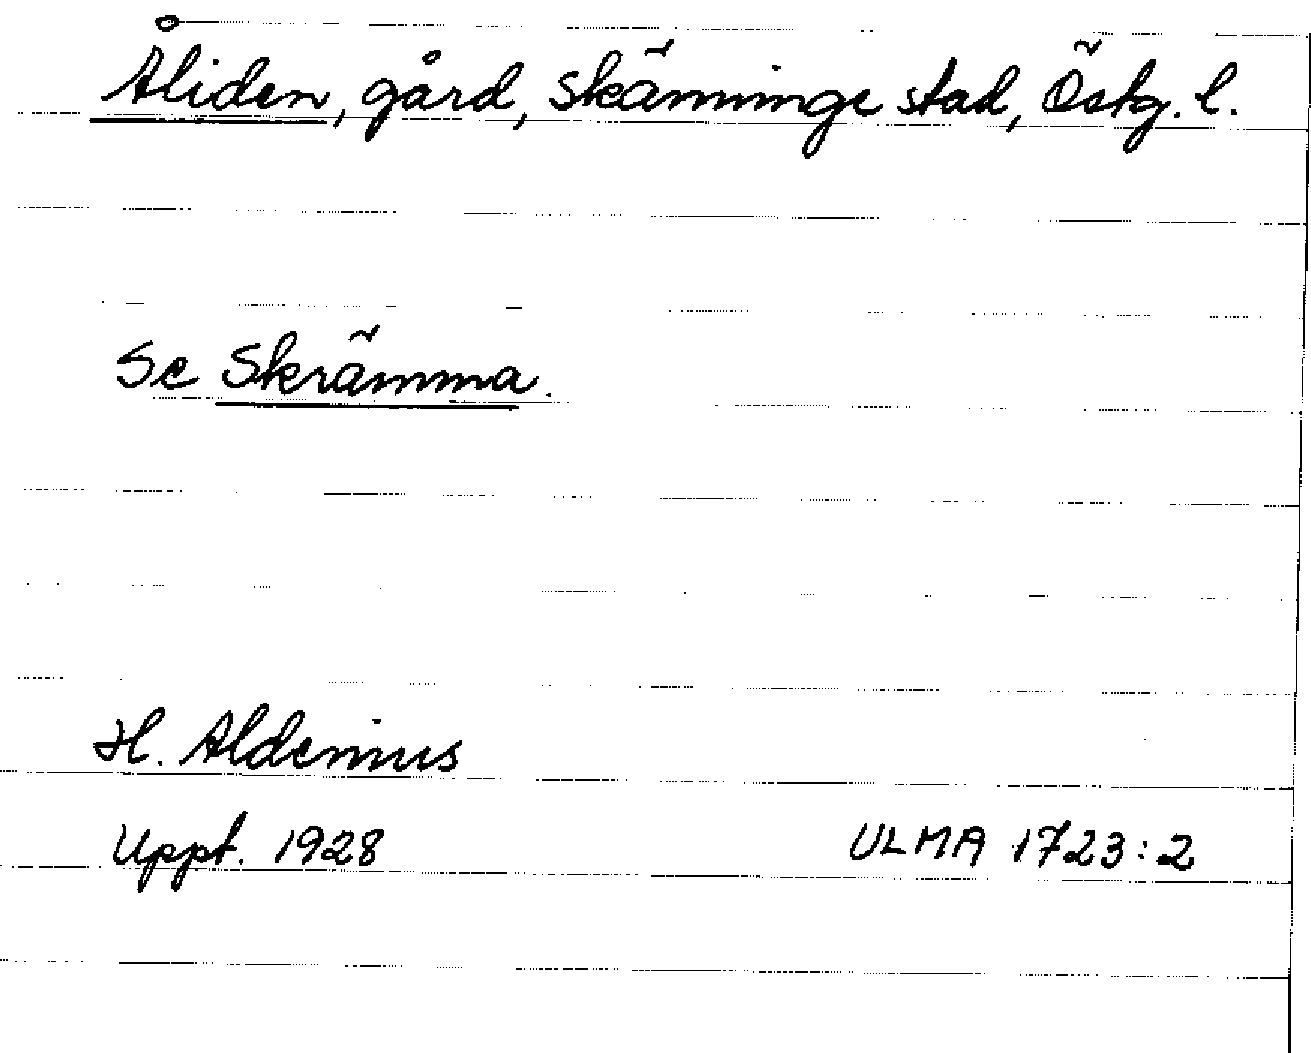 Åliden, gård, Skänninge stad, Östg. l.
Se Skrämma.
H. Aldenius
Uppt. 1928 ULMA 1723:2